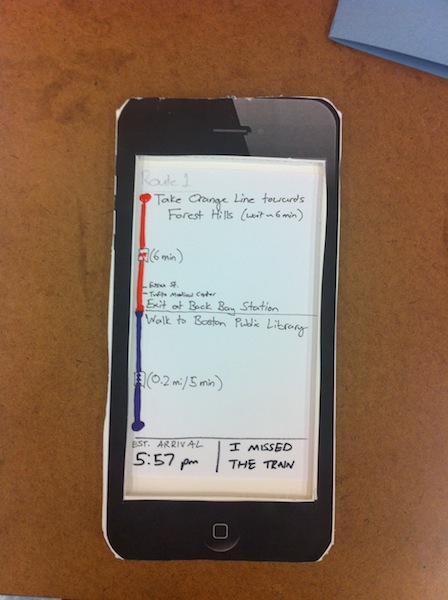 Route 1
Take Orange Line towards
Forest Hills (wait ~6 min)
(6 min)
Essex St.
Tufts Medical Center
Exit at Back Bay Station
Walk to Boston Public Library
(0.2 mi/5 min)
EST. ARRIVAL
5:57 pm
I MISSED
THE TRAIN